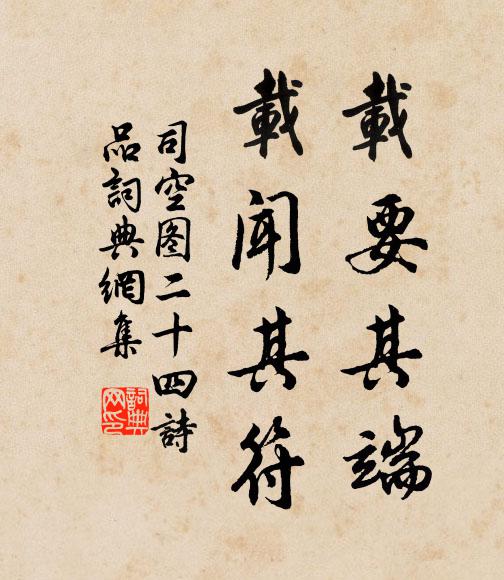 載要其端
載聞其符
司空图二十四詩
品詞典網集
詞典
网印